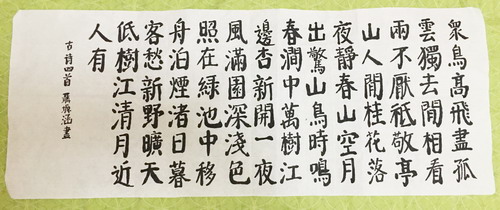 眾鳥高飛盡孤
雲獨去間相看
兩不厭祗敬亭
山人間桂花落
夜靜春山空月
出驚山鳥時鳴
春澗中萬樹江
邊杏新開一夜
風滿園深淺色
照在綠池中移
舟泊煙渚日暮
客愁新野曠天
低樹江清月近
人有
古詩四首 涵